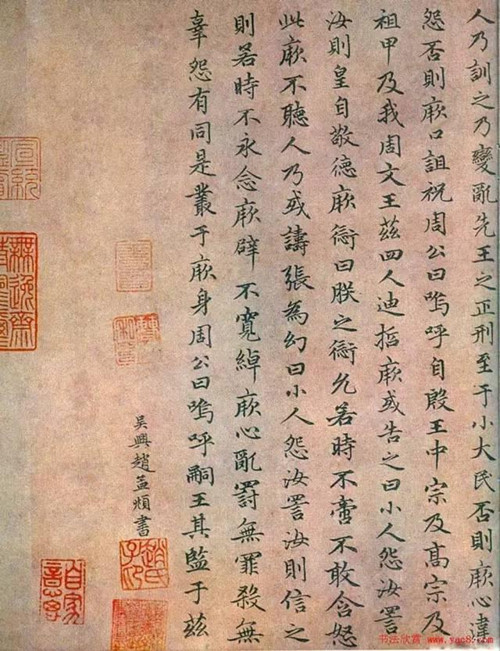 人乃訓之乃變亂先王之正刑至于小大民否則厥心違
怨否則厥口詛祝周公曰嗚呼自殷王中宗及高宗及
祖甲及我周文王茲四人迪哲厥或告之曰小人怨汝詈
汝則皇自敬德厥愆曰朕之愆允若時不啻不敢含怒
此厥不聽人乃或譸張為幻曰小人怨汝詈汝則信之
則若時不永念厥辟不寬綽厥心亂罰無罪殺無
辜怨有同是叢于厥身周公曰嗚呼嗣王其監于茲
吳興趙孟頫書
趙氏子昂
书法欣赏 www.yac8.com